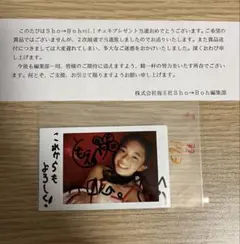 このたびはSho→Boh ミリミチェキプレゼント当選おめでとうございます。ご希望の
賞品ではございませんが、2次抽選で当選致しましたのでお送りいたします。また賞品送
付につきましては大変遅れてしまい、多大なご迷惑をおかけいたしました。深くおわび申
し上げます。
今後も編集部一同、皆様のご期待に添えますよう、精一杯の努力をいたす所存でござい
ます。何とぞ、ご支援、お引立て賜りますようお願い申し上げます。
Sho→Boh編集部
これからも
よろしく!